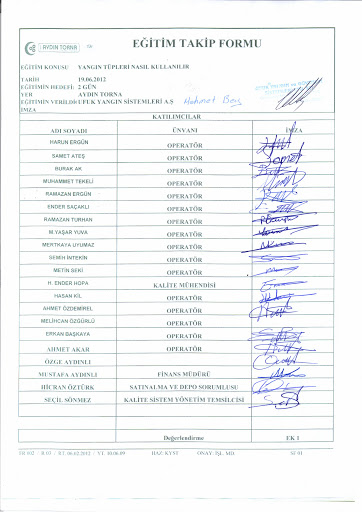 AYDIN TORNA
EĞİTİM TAKİP FORMU
EĞİTİM KONUSU YANGIN TÜPLERİ NASIL KULLANILIR
TARİH 19.06.2012
EĞİTİMİN HEDEFİ: 2 GÜN
YER AYDIN TORNA
EĞİTİMİN VERİLDİĞİ UFUK YANGIN SİSTEMLERİ A.Ş Mehmet
İMZA
KATILIMCILAR
ADI SOYADI ÜNVANI İMZA
HARUN ERGÜN OPERATÖR
SAMET ATEŞ OPERATÖR
BURAK AK OPERATÖR
MUHAMMET TEKELİ OPERATÖR
RAMAZAN ERGÜN OPERATÖR
ENDER SAÇAKLI OPERATÖR
RAMAZAN TURHAN OPERATÖR
M.YAŞAR YUVA OPERATÖR
MERTKAYA UYUMAZ OPERATÖR
SEMİH İNTEKİN OPERATÖR
METİN SEKİ OPERATÖR
H. ENDER HOPA KALİTE MÜHENDİSİ
HASAN KIL OPERATÖR
AHMET ÖZDEMİREL OPERATÖR
MELİHCAN ÖZGÜRLÜ OPERATÖR
ERKAN BAŞKAYA OPERATÖR
AHMET AKAR OPERATÖR
ÖZGE AYDINLI
MUSTAFA AYDINLI FİNANS MÜDÜRÜ
HİCRAN ÖZTÜRK SATINALMA VE DEPO SORUMLUSU
SEÇİL SÖNMEZ KALİTE SİSTEM YÖNETİM TEMSİLCİSİ
Değerlendirme EK 1